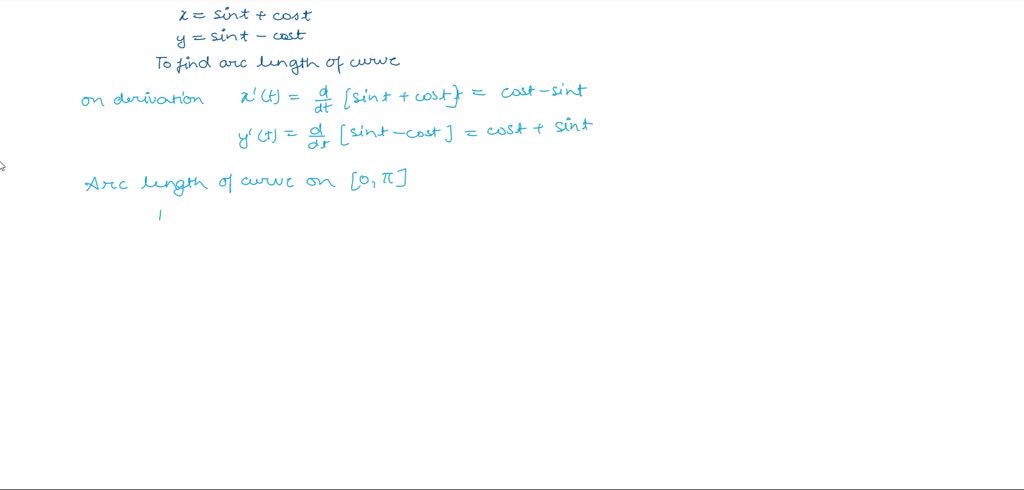 x = sint + cost
y = sint - cost
To find arc length of curve
on derivation x'(t) = d/dt [sint + cost] = cost - sint
y'(t) = d/dt [sint - cost] = cost + sint
Arc length of curve on [0, π]